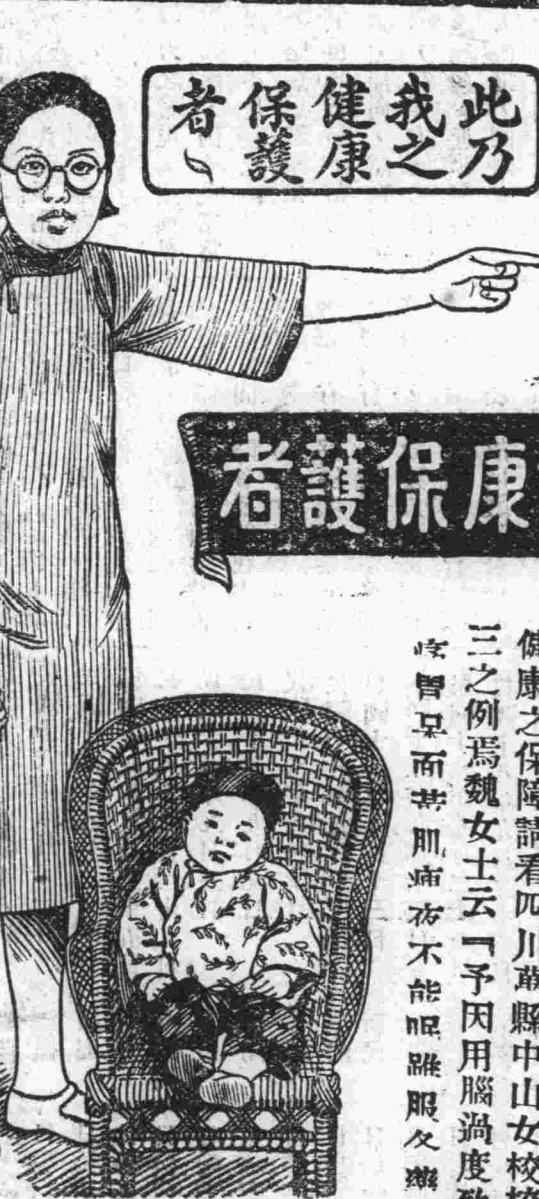 此乃
我之
健康
保護
者
康保護者
健康之保障請看四川萬縣中山女校
三之例焉魏女士云『予因用腦過度
胃呆面黃肌瘦夜不能眠雖服各藥